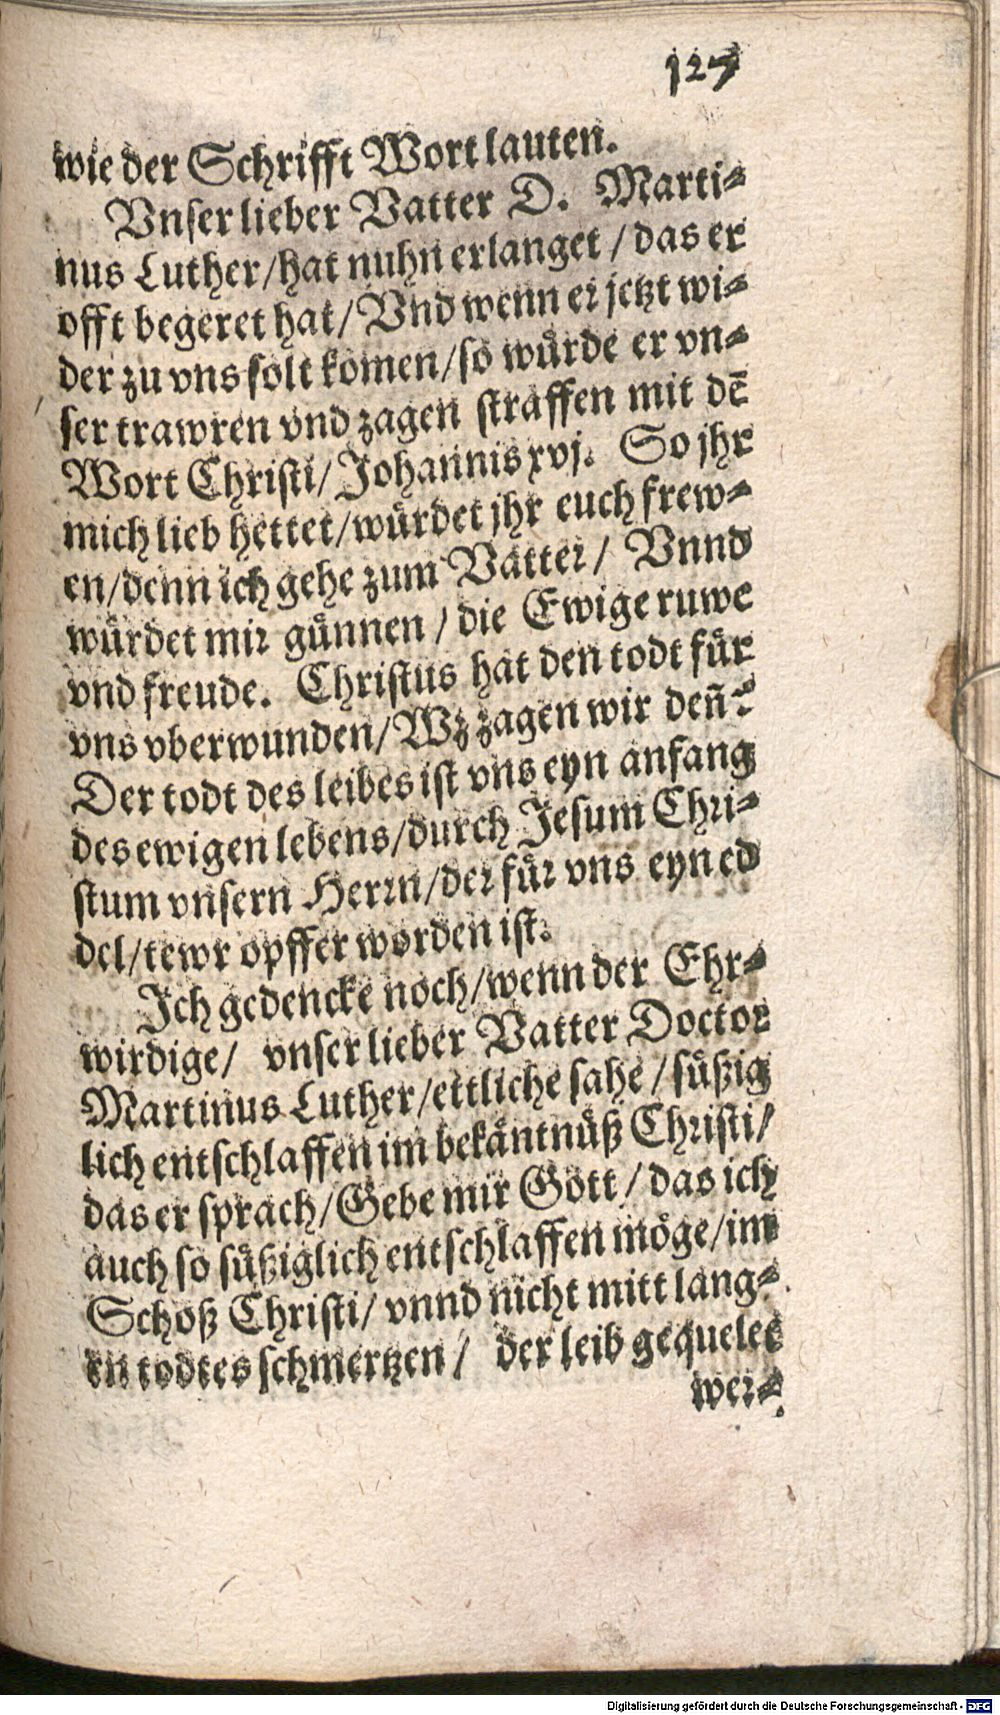 127
wie der Schrifft Wort lauten.
Vnser lieber Vatter D. Marti⸗
nus Luther/hat nuhn erlanget/das er
offt begeret hat/Vnd wenn er jetzt wi⸗
der zu vns solt komen/so würde er vn⸗
ser trawren vnd zagen straffen mit dē
Wort Christi/Johannis xvj. So jhr
mich lieb hettet/würdet jhr euch frew⸗
en/denn ich gehe zum Vatter/ Vnnd
würdet mir günnen/die Ewige ruwe
vnd freude. Christus hat den todt für
vns vberwunden/Wz zagen wir deñ?
Der todt des leibes ist vns eyn anfang
des ewigen lebens/durch Jesum Chri⸗
stum vnsern Herrn/der für vns eyn ed
del/tewr opffer worden ist.
Ich gedencke noch/wenn der Ehr⸗
wirdige/ vnser lieber Vatter Doctor
Martinus Luther/ettliche sahe/süßig
lich entschlaffen im bekäntnüß Christi/
das er sprach/Gebe mir Gott/das ich
auch so süßiglich entschlaffen möge/im
Schoß Christi/ vnnd nicht mitt lang⸗
en todtes schmertzen/ der leib gequelet
wer⸗
Digitalisierung gefördert durch die Deutsche Forschungsgemeinschaft - DFG